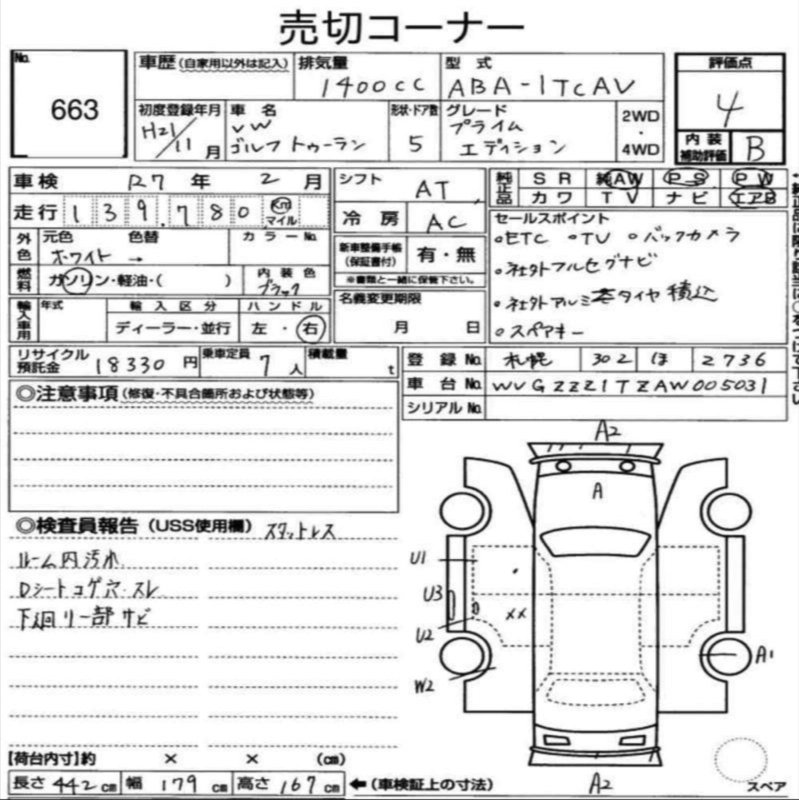 売切コーナー
No. 663
車歴 (自家用以外は記入) 排気量 1400cc 型式 ABA-1TCAV 評価点 4
初度登録年月 H21/11月 車名 VW ゴルフ トゥーラン 形状・ドア数 5 グレード プライム エディション 2WD・4WD 内装補助評価 B
車検 R7年 2月 シフト AT 純正品 SR 純AW PS PW
カワ TV ナビ エアB
走行 139,780 Km マイル 冷房 AC
セールスポイント
外色 元色 ホワイト 色替 → カラーNo.
新車整備手帳(保証書付) 有・無
※書類と一緒に保管下さい。
○ETC ○TV ○バックカメラ
燃料 ガソリン・軽油・( ) 内装色 ブラック
○社外フルセグナビ
輸入車用 年式 輸入区分 ディーラー・並行 ハンドル 左・右
名義変更期限 月 日
○社外アルミ冬タイヤ積込
○スペアキー
リサイクル預託金 18330円 乗車定員 7人 積載量 t
登録No. 札幌 302 ほ 2736
車台No. WVGZZZ1TZAW005031
シリアルNo.
◎注意事項(修復・不具合箇所および状態等)
◎検査員報告(USS使用欄) スタットレス
ルーム内汚れ
Dシートコゲ穴・スレ
下廻り一部サビ
A2
A
U1
U3
U2
××
W2
A1
A2
スペア
【荷台内寸】約 × × (cm)
長さ 442cm 幅 179cm 高さ 167cm ←(車検証上の寸法)